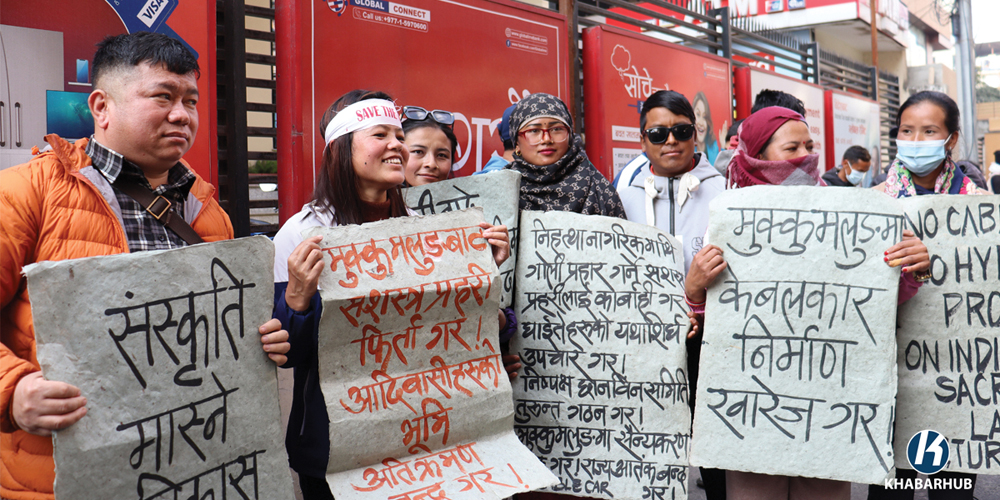 GLOBAL CONNECT
Call us: +977-1-5970600
VISA
सोचे
SAVE THE
संस्कृति
मास्ने
विकास
मुक्कुमलुङबाट
सशस्त्र प्रहरी
फिर्ता गर!
आदिवासीहरूको
भूमि
अतिक्रमण
बन्द गर!
निहत्था नागरिकमाथि
गोली प्रहार गर्ने सशस्त्र
प्रहरीलाई कार्बाही गर
घाईतेहरूको यथाशिघ्र
उपचार गर।
निष्पक्ष छानविन समिति
तुरुन्त गठन गर।
मुक्कुमलुङमा सैन्यकरण
गर। राज्य आतंक बन्द
CABLE CAR गर।
मुक्कुमलुङमा
केबलकार
निर्माण
खारेज गर
NO CAB
NO HY
PRO
ON INDI
SAC
LA
TURE
KHABARHUB